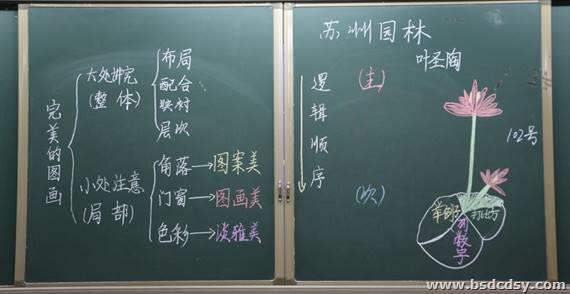 完美的图画
大处讲究
(整 体)
布局
配合
映衬
层次
小处注意
(局 部)
角落→图案美
门窗→图画美
色彩→淡雅美
苏州园林
叶圣陶
逻辑顺序
(主)
(次)
102号
举例子
打比方
列数字
www.bsdcdsy.com